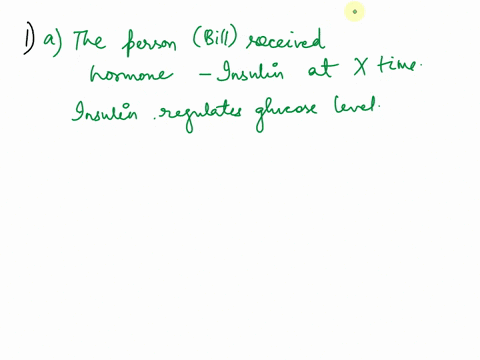 1) a) The person (Bill) received
hormone - Insulin at X time.
Insulin regulates glucose level.